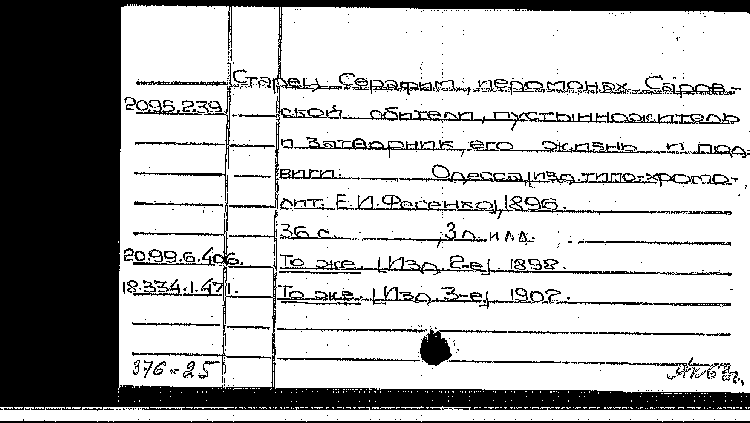 Старец Серафим, иеромонах Саров-
2095.239 ской обители, пустынножитель
и затворник, его жизнь и под-
виги. Одесса, изд. типо-хромо-
лит. Е.И. Фесенко, 1896.
36 с. , 3 л. илл.
20.99.6.406. То же. [Изд. 2-е] 1898.
18.334.1.471. То же. [Изд. 3-е] 1902.
376-25